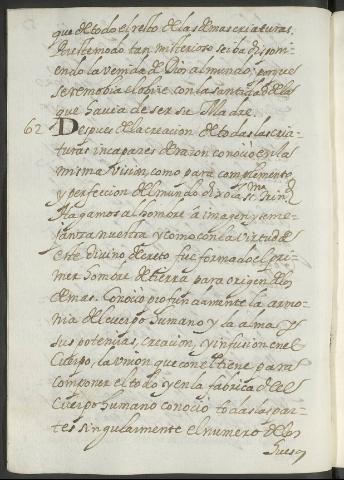 que de todo el resto de las demas criaturas.
Por este modo tan misterioso se iba disponi-
endo la venida de Dios al mundo, porque
se removia el ayre con la santidad de la
que havia de ser su Madre.
62 Despues de la creacion de todas las cria-
turas incapaces de razon conocio en la
misma vision, como para complemento
y perfeccion del mundo dixo la ssma Trind
Hagamos al hombre à imagen y seme-
janza nuestra y como con la virtud de
este divino decreto fue formado el pri-
mer hombre de tierra para origen de los
demas. Conociò profundamente la armo-
nia del cuerpo humano y la alma y
sus potencias, creacion, y infusion en el
Cuerpo, la union que con el tiene para
componer el todo y en la fabrica de el
Cuerpo humano conociò todas las par-
tes singularmente el numero de los
huesos